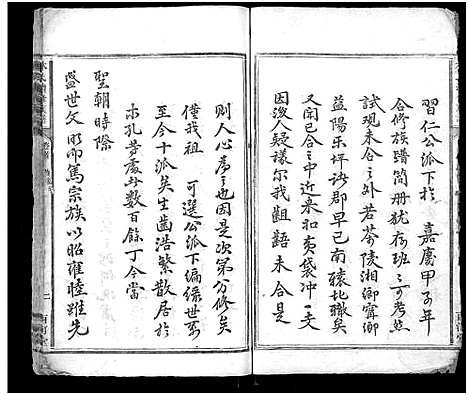 習仁公派下於　嘉慶甲子年
合修族譜簡册犹存班三可考然
試現未合之外若茶陵湘鄉甯鄉
益陽乐坪诸郡早已南轅北轍矣
又闲已合之中近来和夷袋冲一支
因没人疑樣尔我齟齬未合是
則人心彦之也因是次第分修矣
僅我祖　可選公派下編像世系
至今十派矣生齒浩繁散居於
木孔等處丁数百餘丁今當
聖朝時際
盛世文明而篤宗族以昭雍睦雖先